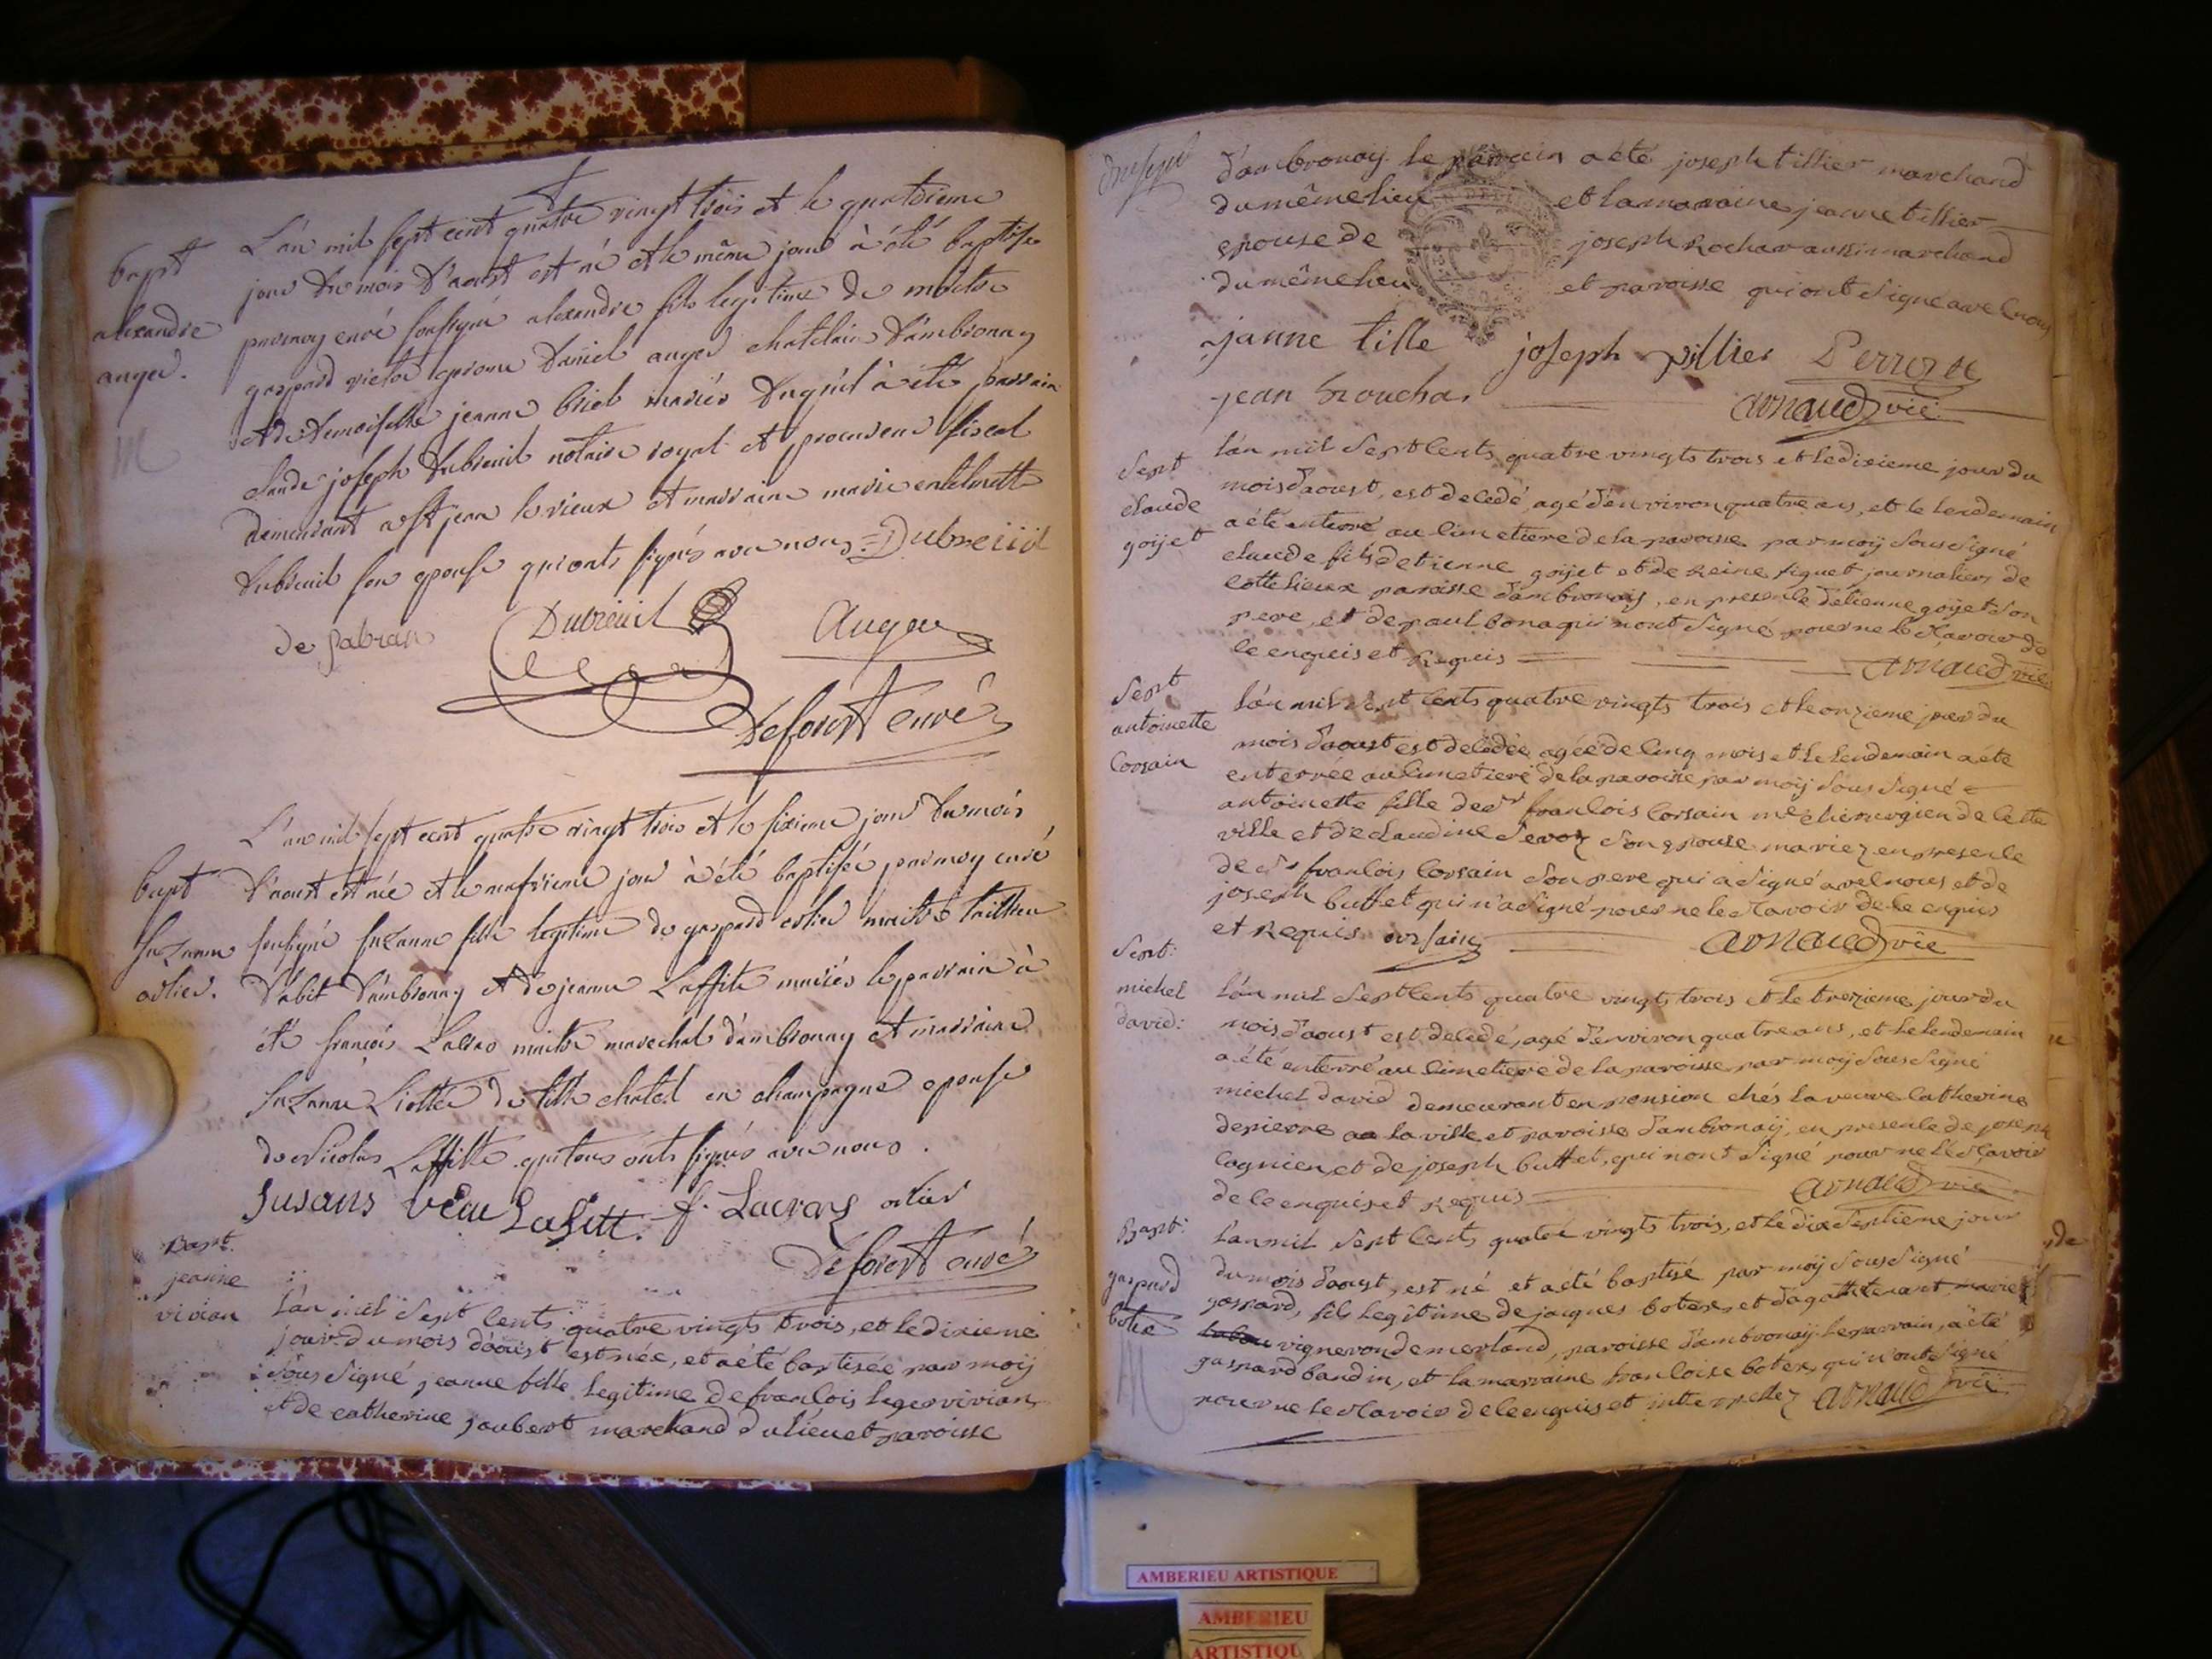 L'an mil sept cent quatre vingt trois et le quatorzieme
bapt
jour du mois d'aoust est né et le même jour à été baptise
alexandre
auger.
par moy curé soussigné alexandre fils legitime de maitre
gaspard victor jerome Daniel auger chatelain d'ambronay
et de demoiselle jeanne briel mariés duquel à été parrain
claude joseph dubreuil notaire royal et procureur fiscal
demeurant a st jean le vieux et marraine marie
dubreuil son epouse qui ont signés avec nous = Dubreüil
Dubreuil Auger
Deforest curé
L'an mil sept cent quatre vingt trois et le sixieme jour du mois
bapt
d'aoust est née et le jour à été baptisée par moy curé
suzanne
soussigné suzanne fille legitime de gaspard maitre tailleur
d'abit d'ambronay et de jeanne Laffite mariés le parrain à
été françois Lacras maitre marechal d'ambronay et marraine
suzanne de chatel en champagne epouse
de Nicolas Laffitte qui tous onts signés avec nous.
susans Lafitt. f. Lacras
Deforest curé
Bapt.
jeanne
vivian
L'an mil sept cents quatre vingts trois, et le dixieme
jour du mois d'aoust est née, et a été baptisée par moÿ
sous signé jeanne fille legitime de francois leger vivian
et de catherine joubert marchand du lieu et paroisse
d'ambronay le parrain a été joseph tillier marchand
du même lieu et la maraine jeanne tillier
epouse de joseph Rochar aussi marchand
du même lieu et paroisse qui ont signé avec nous
janne tille joseph tillier Perroze
jean arnaud vic
Sept
claude
goÿet
l'an mil sept cents quatre vingts trois et le dixieme jour du
mois d'aoust, est decedé agé d'environ quatre ans, et le lendemain
a été enterré au cimetiere de la paroisse par moÿ sous signé
claude fils d'etienne goÿet et de Reine figuet journaliers de
cottelieux paroisse d'ambronay, en presence d'etienne goÿet son
pere, et de paul bona qui n'ont signé pour ne le scavoir de
ce enquis et Requis arnaud vic
Sept
antoinette
Corsain
l'an mil sept cents quatre vingts trois et le onzieme jour du
mois d'aoust est decedée agée de cinq mois et le lendemain a été
enterrée au cimetiere de la paroisse par moÿ sous signé
antoinette fille de sr francois Corsain me chirurgien de cette
ville et de claudine Sevoz son epouse mariez en presence
de sr francois Corsain son pere qui a signé avec nous et de
joseph buffet qui n'a signé pour ne le scavoir de ce enquis
et Requis orsain arnaud vic
Sept:
michel
david:
l'an mil sept cents quatre vingts trois et le treizieme jour du
mois d'aoust est decedé, agé d'environ quatre ans, et le lendemain
a été enterré au cimetiere de la paroisse par moÿ sous signé
michel david demeurant en pension chés la veuve Catherine
depierre la ville et paroisse d'ambronaÿ, en presence de joseph
Cagnien, et de joseph buffet, qui n'ont signé pour ne le scavoir
de ce enquis et Requis arnaud vic
Bapt:
gaspard
botex
L'an mil sept cents quatre vingts trois, et le dix septieme jour
du mois d'aoust, est né et a été baptisé par moÿ sous signé
gaspard, fils legitime de jacques botex, et d'agathe
vigneron de merland, paroisse d'ambronaÿ. le parrain, a été
gaspard baudin, et la marraine francoise botex, qui n'ont signé
pour ne le scavoir de ce enquis et interpellez arnaud vic
AMBERIEU ARTISTIQUE
AMBERIEU
ARTISTIQU